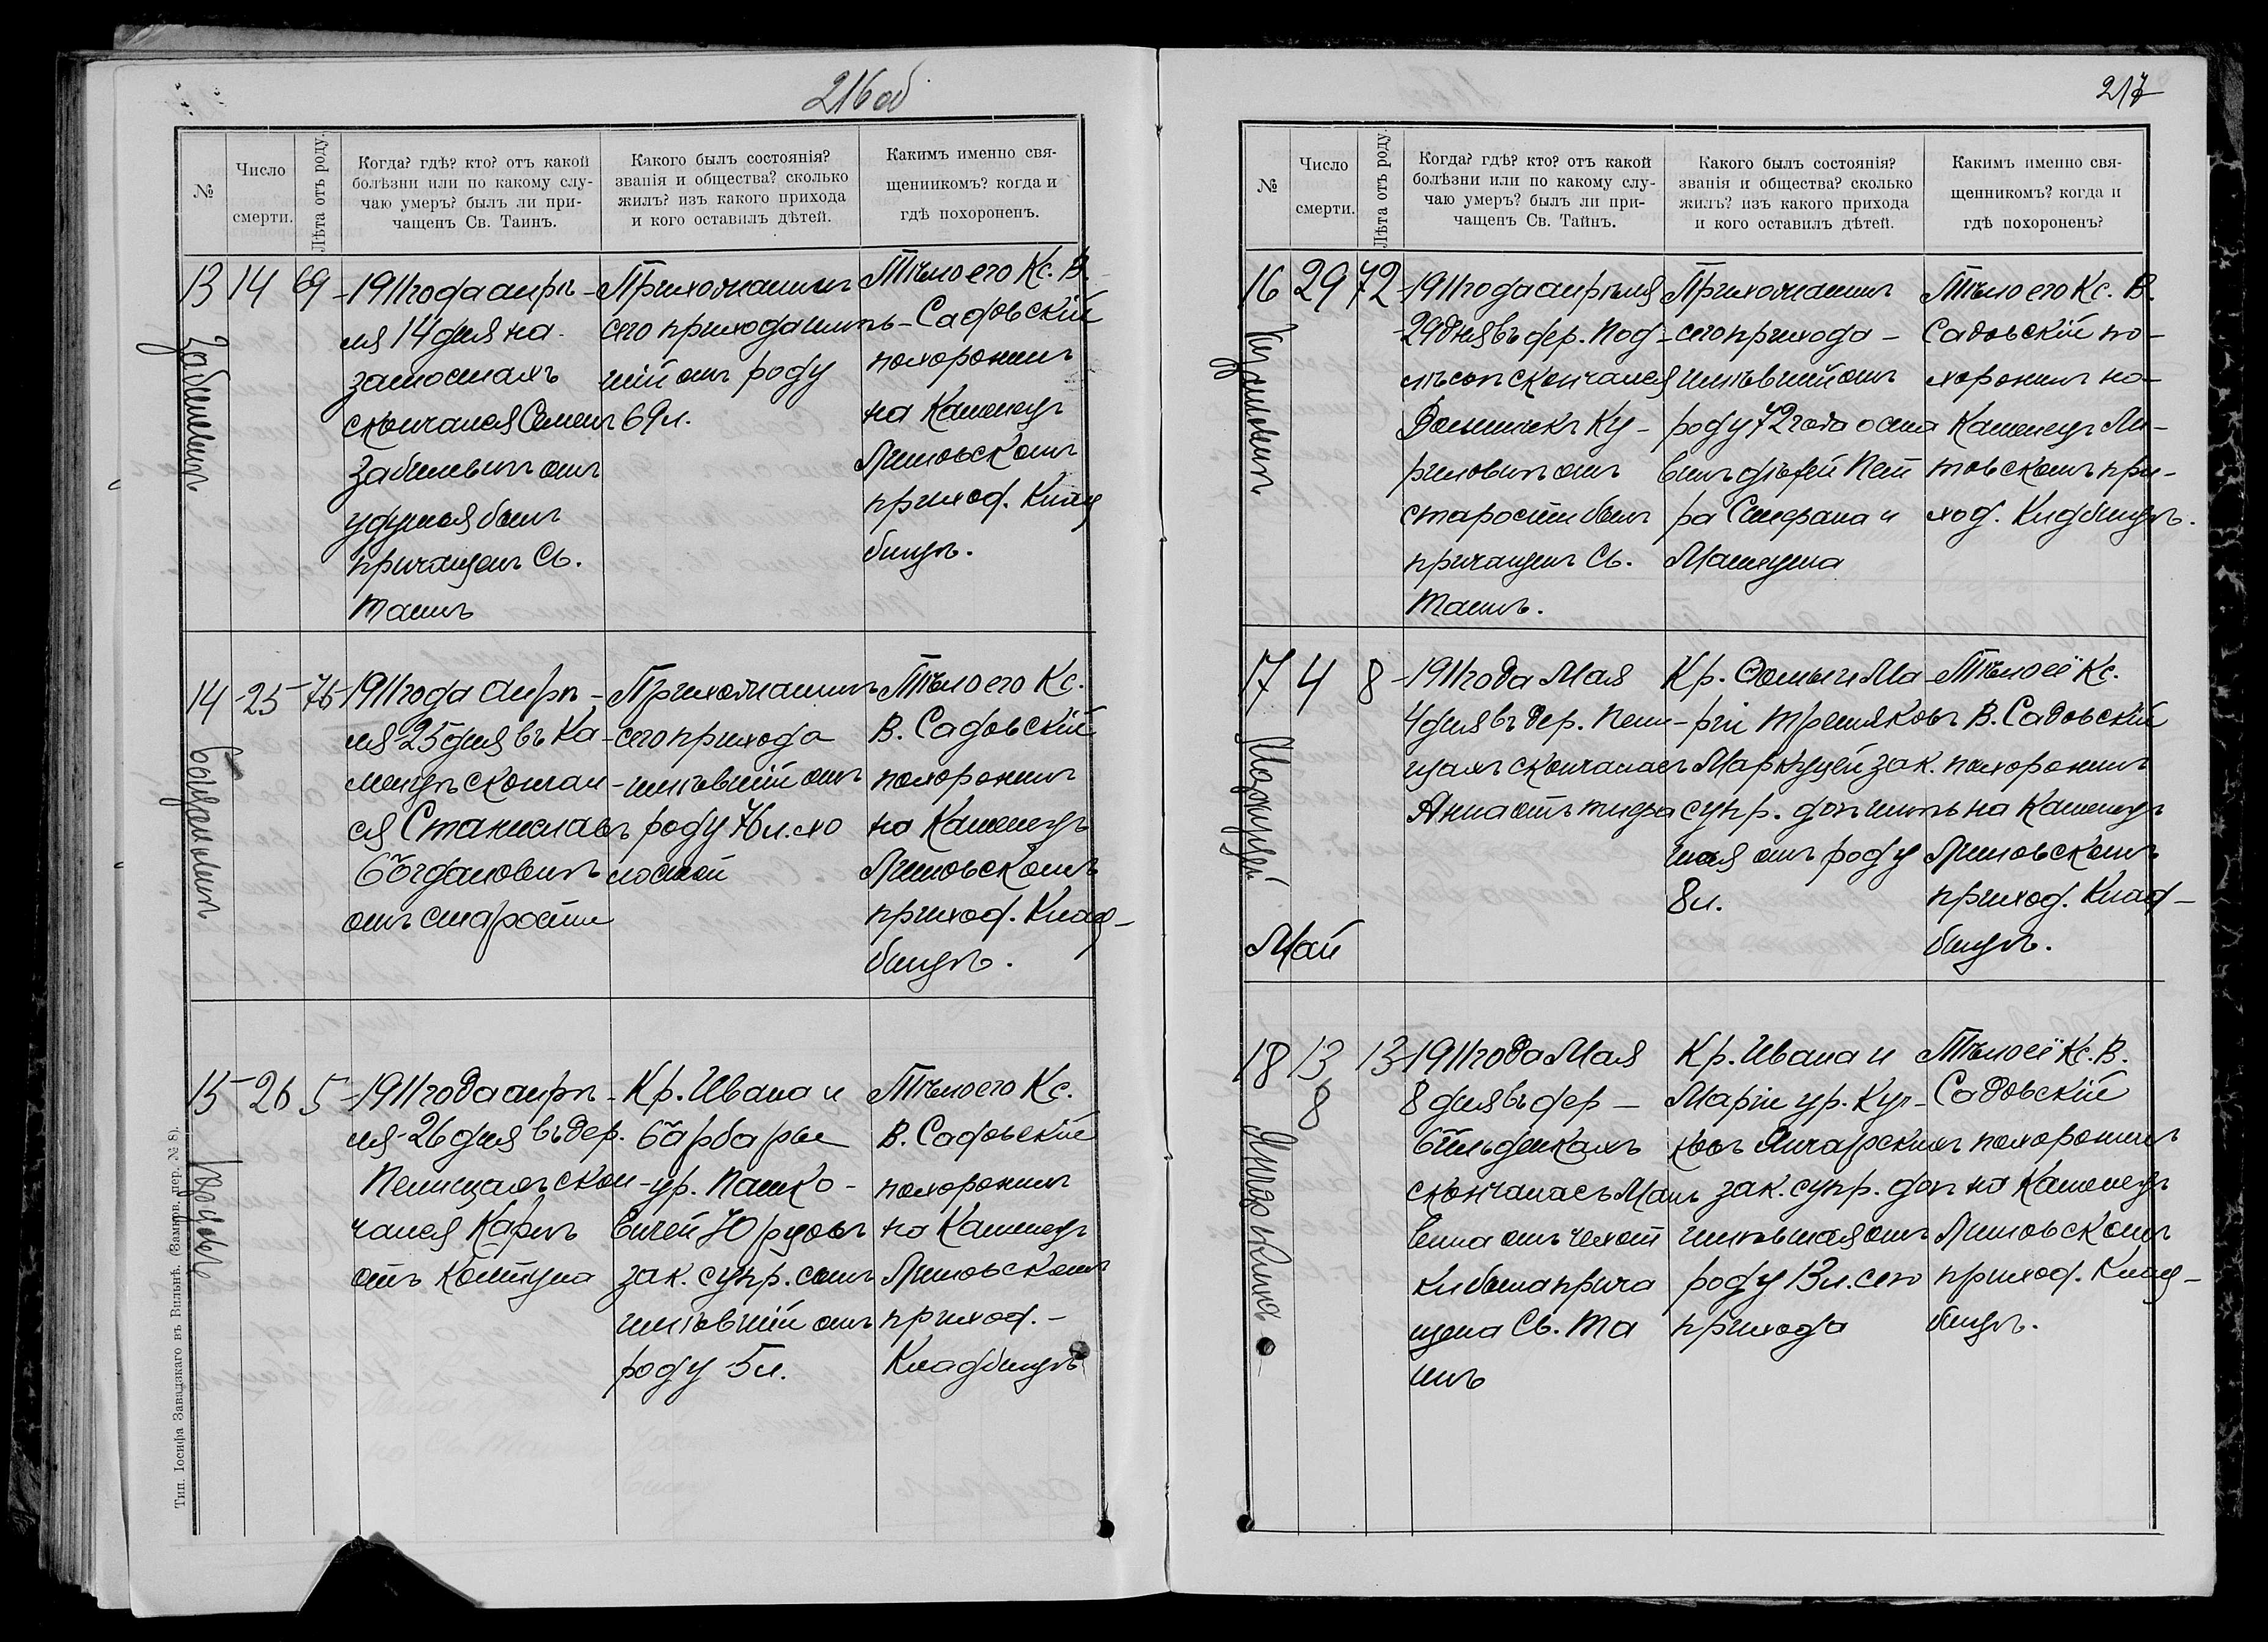 216об
№
Число
смерти.
Лѣта отъ роду.
Когда? гдѣ? кто? отъ какой
болѣзни или по какому слу-
чаю умеръ? былъ ли при-
чащенъ Св. Таинъ.
Какого былъ состоянія?
званія и общества? сколько
жилъ? изъ какого прихода
и кого оставилъ дѣтей.
Какимъ именно свя-
щенникомъ? когда и
гдѣ похороненъ.
13 14 69
1911 года апрѣ-
ля 14 дня на
замостахъ
скончался Семенъ
Забилевичъ отъ
удушья былъ
причащенъ Св.
Таинъ
Прихожанинъ
сего прихода имѣ-
шій отъ роду
69 л.
Тѣло его Кс. В.
Садовскій
похоронилъ
на Каменецъ
Литовскомъ
приход. Клад
бищѣ.
Забилевичъ
14 25 76
1911 года апрѣ-
ля 25 дня въ Ка-
менцѣ скончал-
ся Станиславъ
Богдановичъ
отъ старости
Прихожанинъ
сего прихода
имѣвшій отъ
роду 76 л. хо
лостой
Тѣло его Кс.
В. Садовскій
похоронилъ
на Каменецъ
Литовскомъ
приход. Клад-
бищѣ.
Богдановичъ
15 26 5
1911 года апрѣ-
ля 26 дня въ дер.
Пелищахъ скон-
чался Карлъ
отъ коклуша
Кр. Ивана и
Барбары
ур. Пашко-
вичей Юрудовъ
зак. супр. сынъ
имѣвшій отъ
роду 5 л.
Тѣло его Кс.
В. Садовскій
похоронилъ
на Каменецъ
Литовскомъ
приход.-
Кладбищѣ
Тип. Іосифа Завадзкаго въ Вильнѣ. (Замков. пер. № 8).
217
№
Число
смерти.
Лѣта отъ роду.
Когда? гдѣ? кто? отъ какой
болѣзни или по какому слу-
чаю умеръ? былъ ли при-
чащенъ Св. Тайнъ.
Какого былъ состоянія?
званія и общества? сколько
жилъ? изъ какого прихода
и кого оставилъ дѣтей.
Какимъ именно свя-
щенникомъ? когда и
гдѣ похороненъ?
16 29 72
1911 года апрѣля
29 дня въ дер. Под-
лѣсѣ скончался
Доминикъ Ку-
риловичъ отъ
старости былъ
причащенъ Св.
Таинъ.
Прихожанинъ
сего прихода-
имѣвшій отъ
роду 72 года оста
вилъ дѣтей Пет
ра Стефана и
Матеуша
Тѣло его Кс. В.
Садовскій по-
хоронилъ на
Каменецъ Ли-
товскомъ при-
ход. Кладбищѣ.
17 4 8
1911 года Мая
4 дня въ дер. Пели-
щахъ скончалась
Анна отъ тифа
Кр. Фомы и Ма-
ріи Третяковъ
Маркуцей зак.
супр. дочь имѣ
шая отъ роду
8 л.
Тѣло её Кс.
В. Садовскій
похоронилъ
на Каменецъ
Литовскомъ
приход. Клад-
бищѣ.
Май
18 13 13
8
1911 года Мая
8 дня въ дер-
скончалась Маль
вина отъ чахот
ки была прича
щена Св. Та
инъ
Кр. Ивана и
зак. супр. дочь
имѣвшая отъ
роду 13 л. сего
прихода
Тѣло её Кс. В.
Садовскій
похоронилъ
на Каменецъ
Литовскомъ
приход. Клад-
бищѣ.